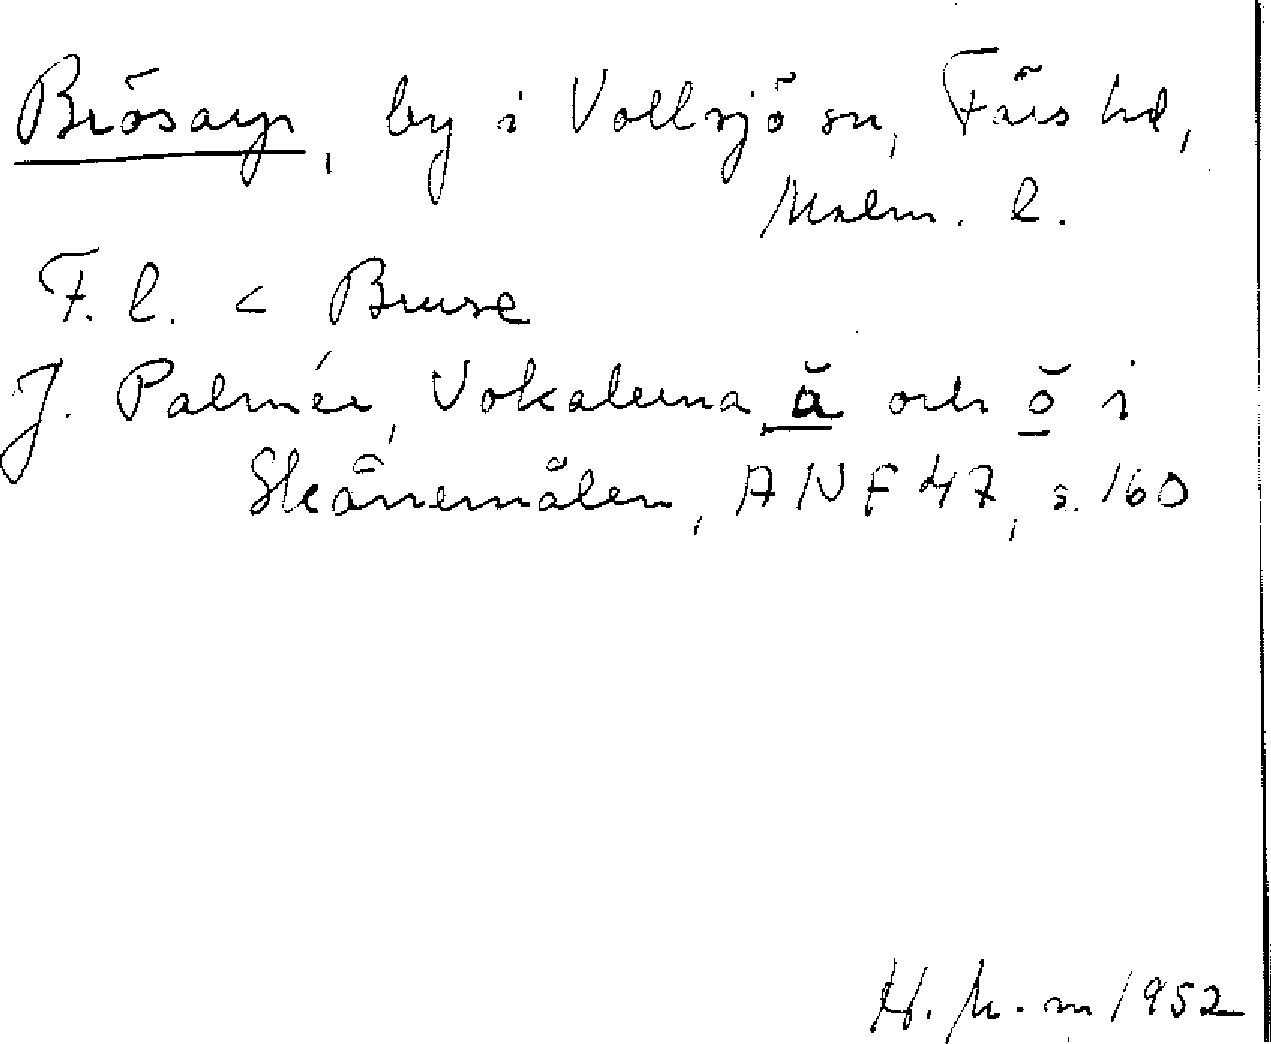 Brösarp, by i Vollsjö sn, Färs hd,
Malm. l.
F. l. < Bruse
J. Palmér, Vokalerna ă och ŏ i
Skånemålen, ANF 47, s. 160
H. M-m 1952